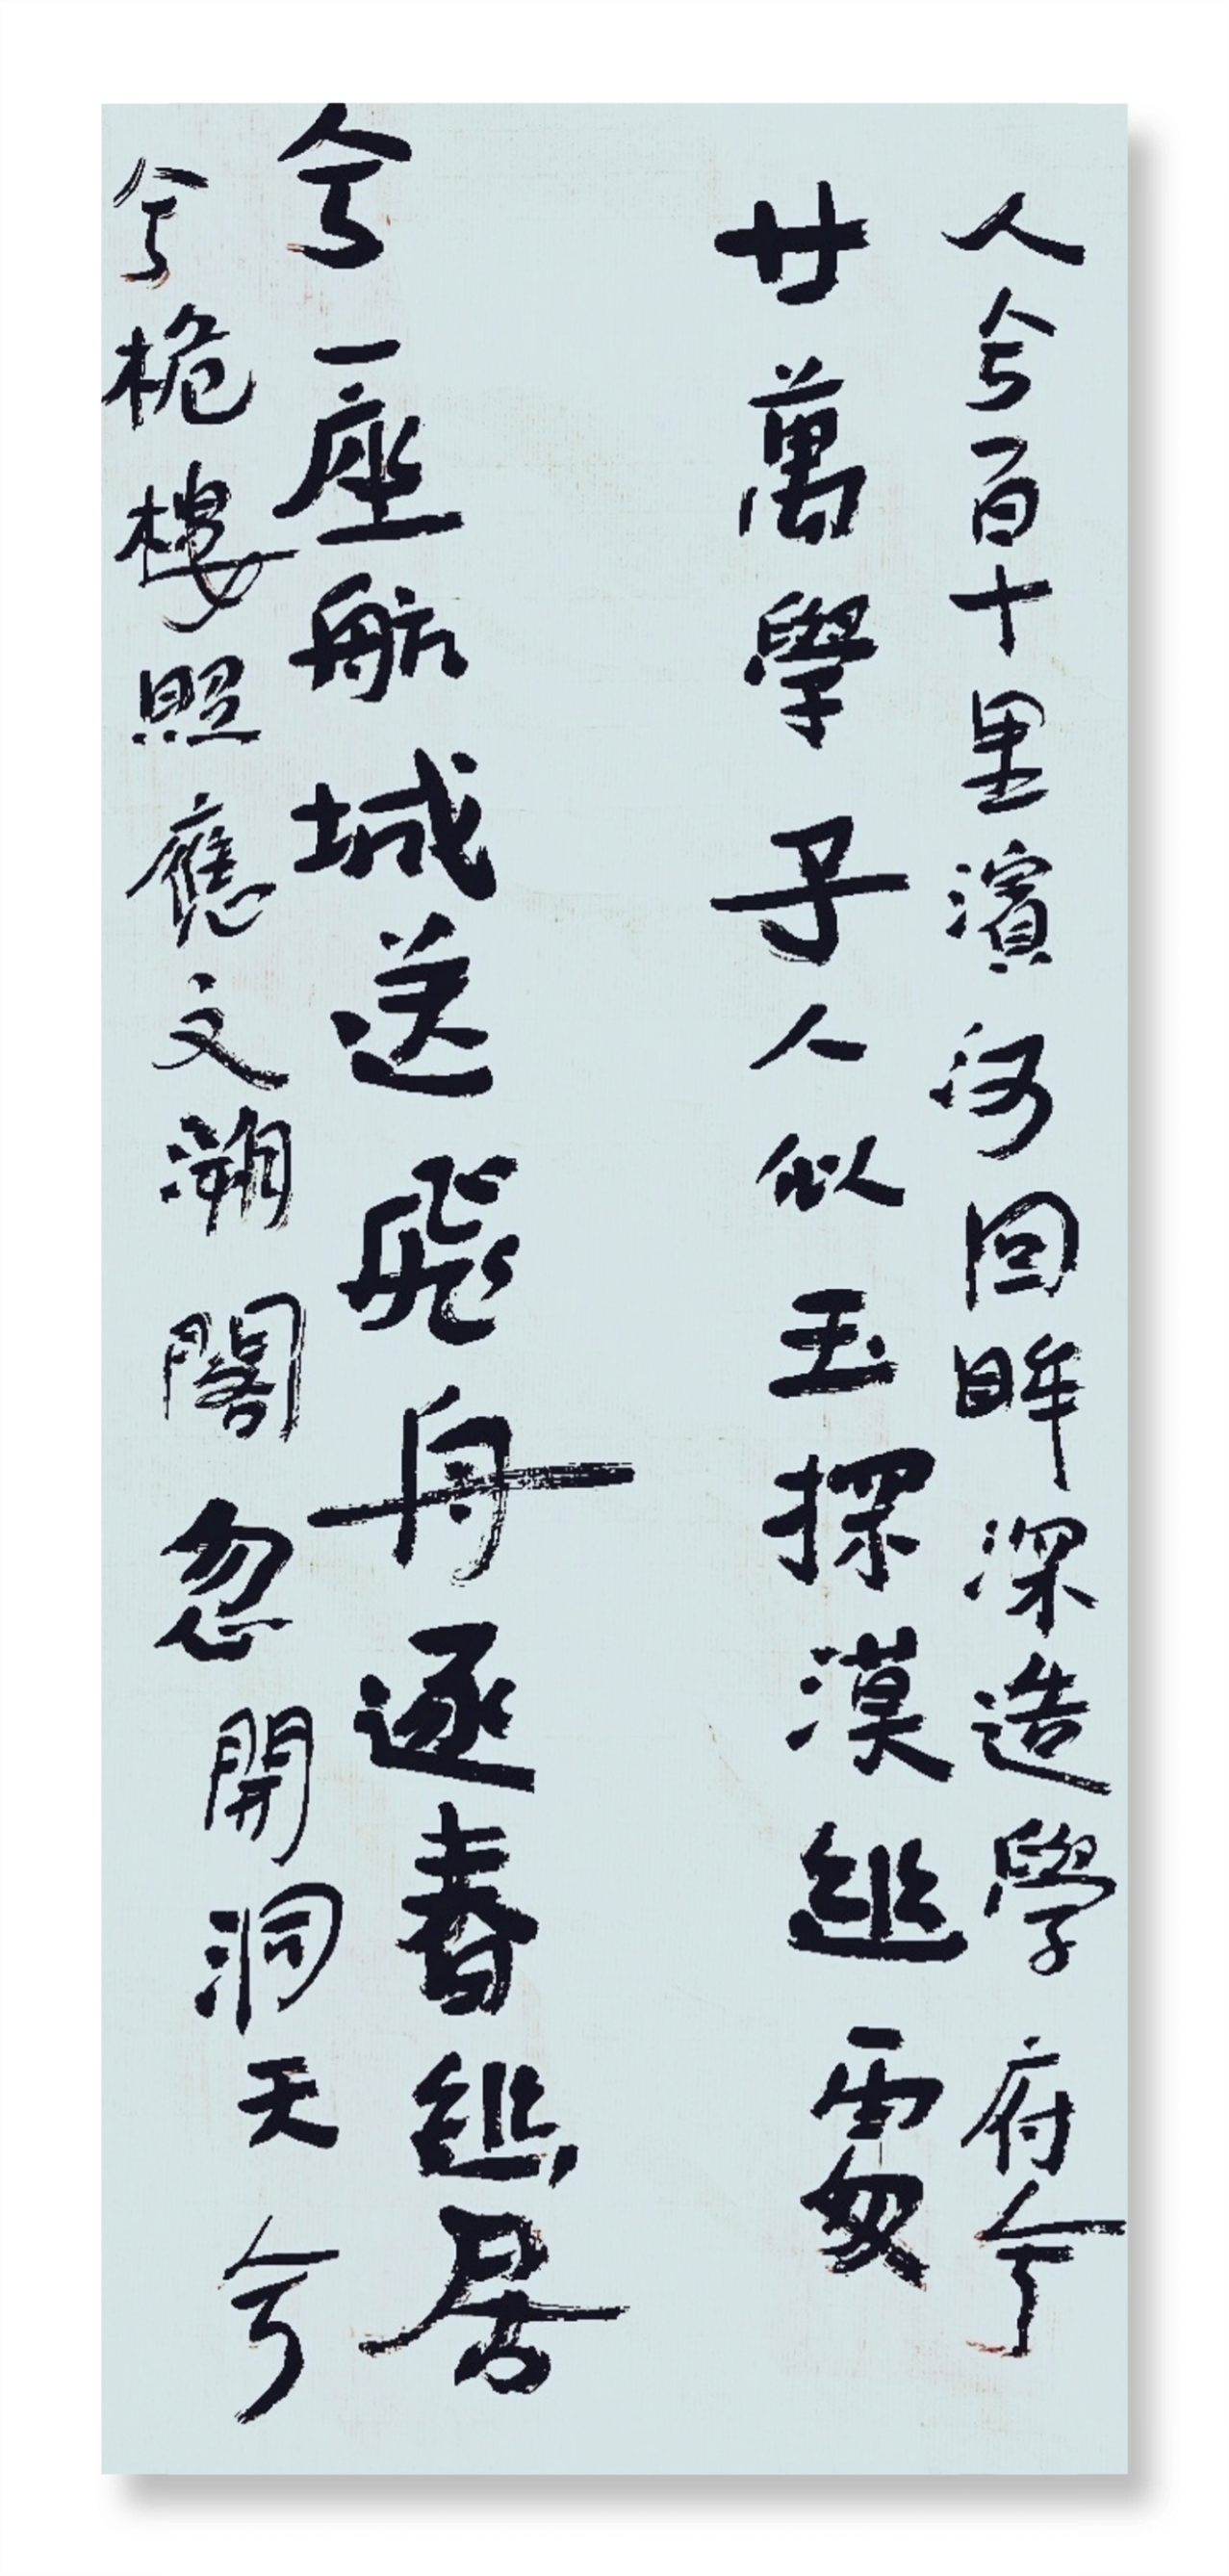 人兮百十里濱河回眸深造學府兮
廿萬學子人似玉探漠逃雲
兮一座航城送飛舟逐春逃居
兮桅樓照應文溯閣忽開洞天兮